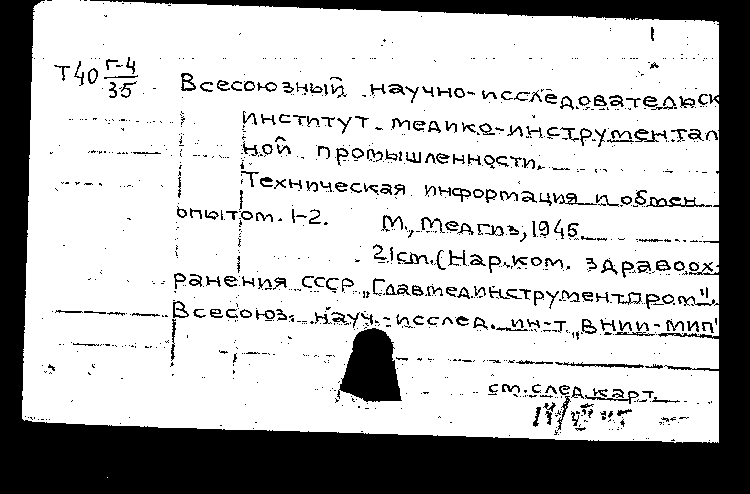 Т40 Г-4/35
Всесоюзный научно-исследовательск
институт медико-инструментал
ной промышленности.
Техническая информация и обмен
опытом. 1-2. М., Медгиз, 1945.
21cm. (Нар.ком. здравоох-
ранения СССР „Главмединструментпром".
Всесоюз. науч.-исслед. ин-т „ВНИИ-МИП"
см. след. карт.